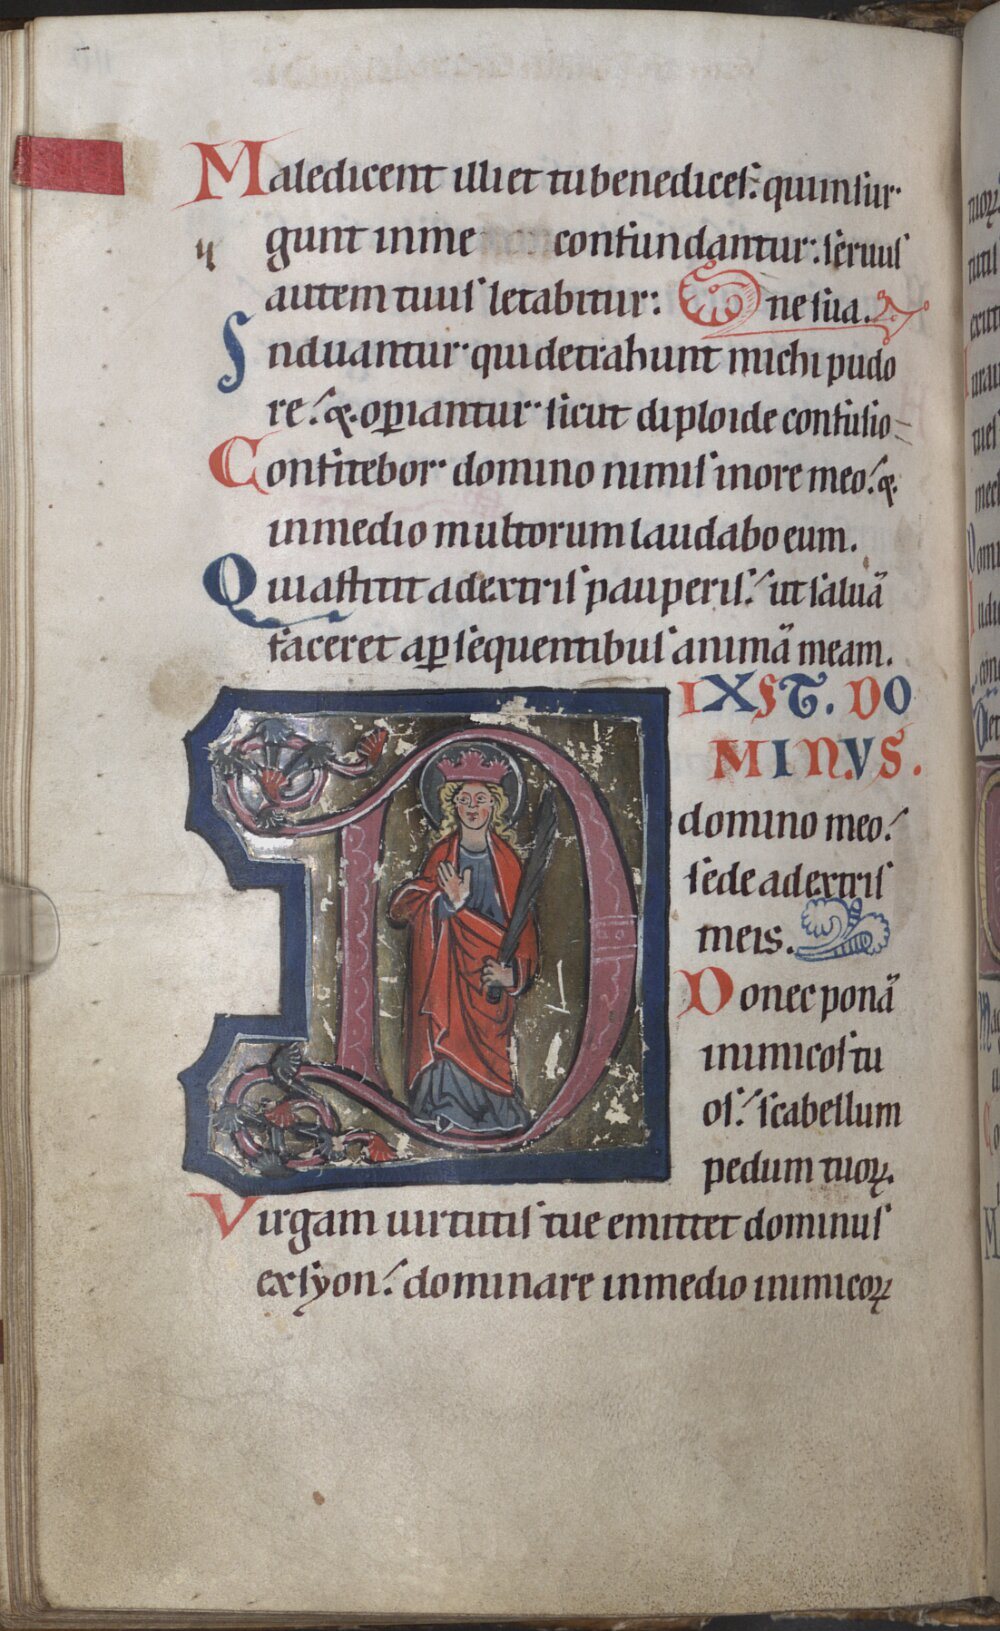 Maledicent illi et tu benedices: qui insur
gunt in me confundantur: seruus
autem tuus letabitur: ne sua.
Induantur qui detrahunt michi pudo
re: & op̱iantur sicut diploide confusio-
Confitebor domino nimis in ore meo: &
in medio multorum laudabo eum.
Quia astitit a dextris pauperis: ut saluā
faceret a ꝑsequentibus animā meam.
DIXIT. DO
MINVS.
domino meo:
sede a dextris
meis.
Donec ponā
inimicos tu
os: scabellum
pedum tuoꝝ.
Virgam uirtutis tue emittet dominus
ex syon: dominare in medio inimicoꝝ